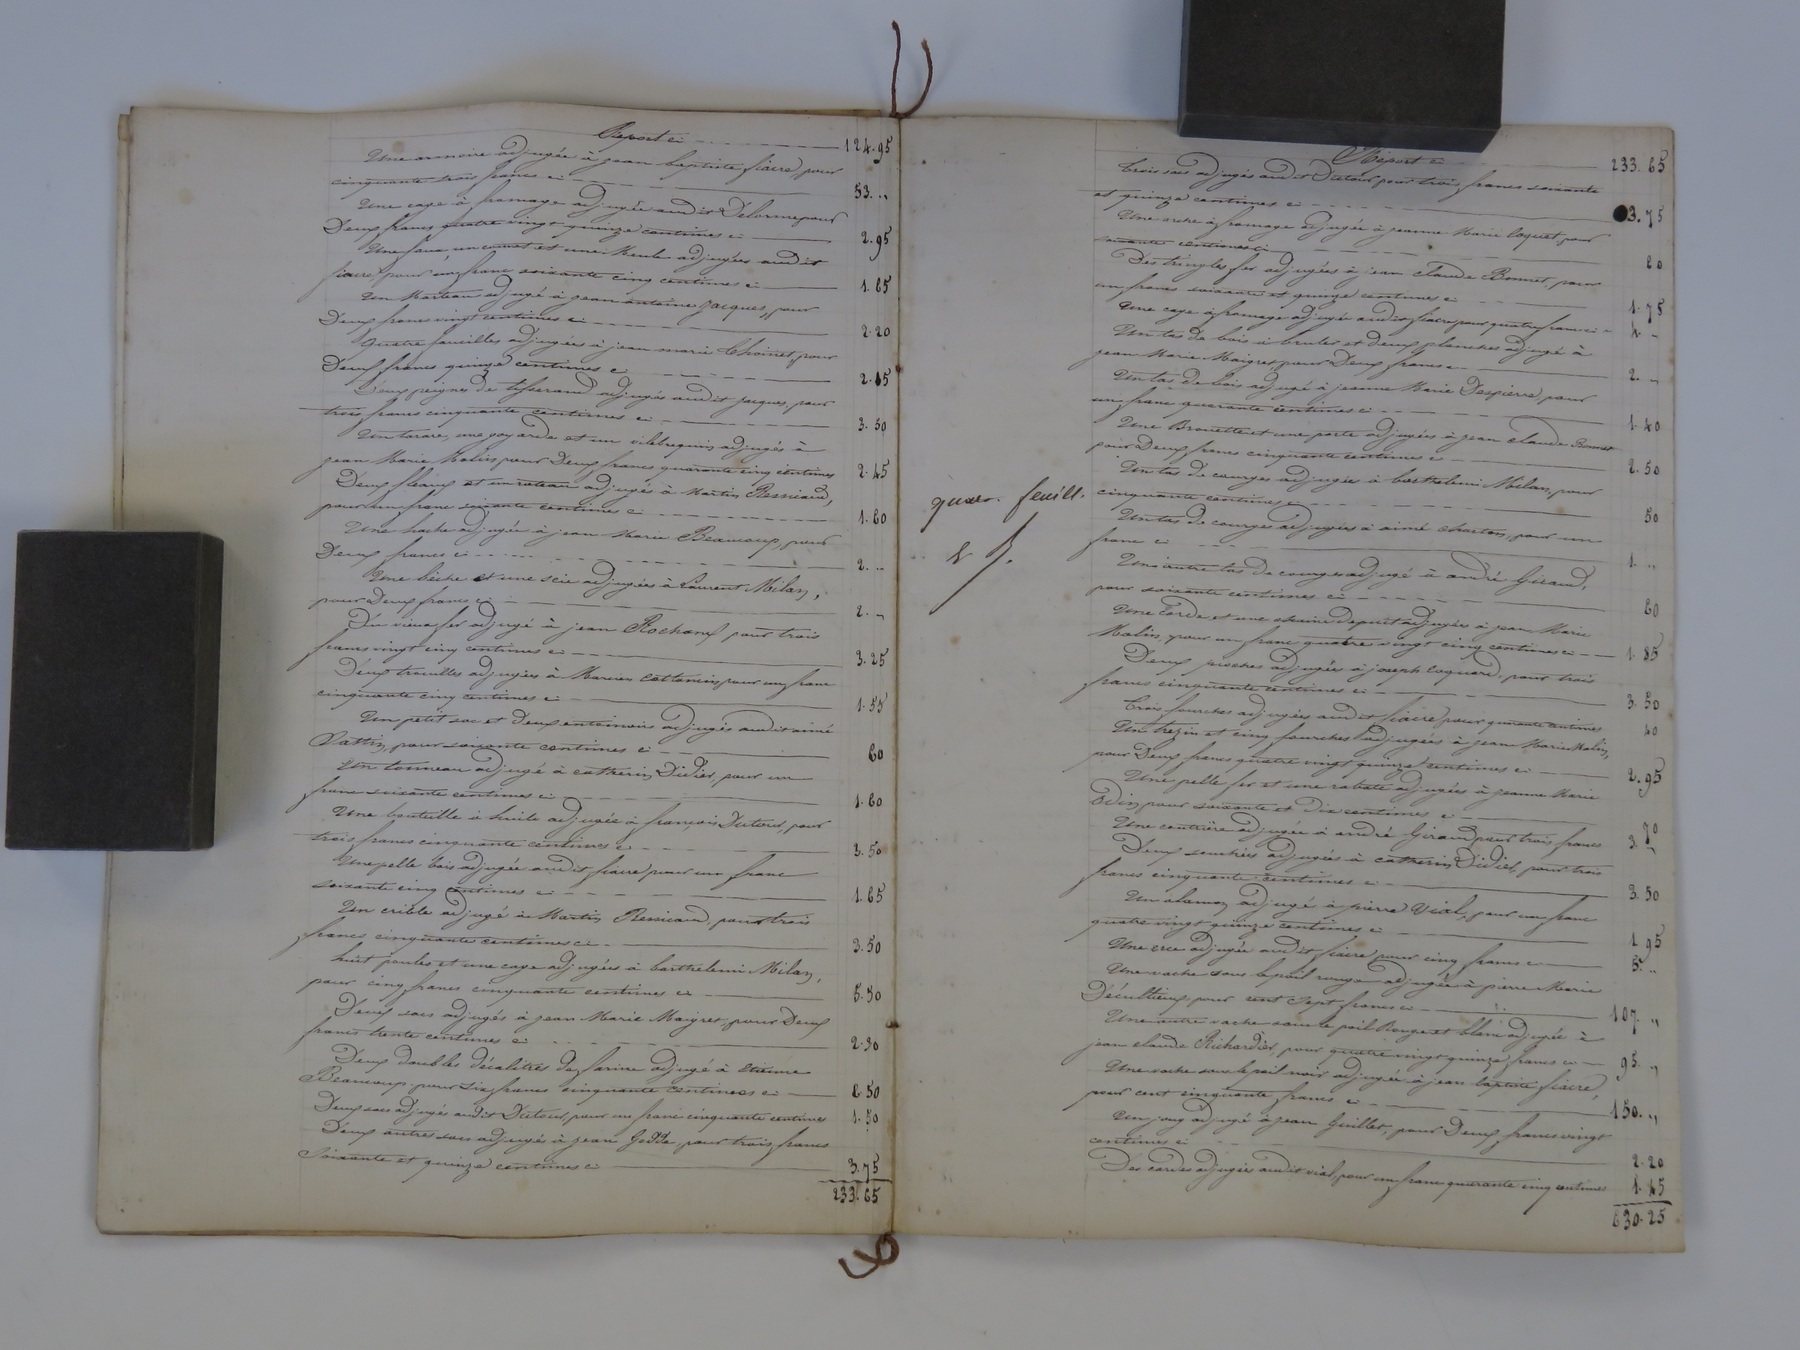 Report ci 124.95
Une armoire adjugée à jean baptiste fiaire, pour
cinquante trois francs ci 53. "
Une cage à fromage adjugée audit Delorme pour
Deux francs quatre vingt quinze centimes ci 2.95
Une faux, un cornet et une Meule adjugées audit
fiaire, pour un franc soixante cinq centimes ci 1.65
Un Marteau adjugé à jean antoine jacques, pour
Deux francs vingt centimes ci 2.20
Quatre faucilles adjugées à jean marie Choinet, pour
Deux francs quinze centimes ci 2.15
Deux peignes de tisserand adjugés audit jacques, pour
trois francs cinquante centimes ci 3.50
Un tarare, une goyarde et un vilebrequin adjugés à
jean Marie Molin pour Deux francs quarante cinq centimes 2.45
Deux fleaux et un rateau adjugés à Martin Ressicaud,
pour un franc soixante centimes ci 1.60
Une hache adjugée à jean Marie Beaucoup, pour
Deux francs ci 2. "
Une bêche et une scie adjugées à Laurent Milan,
pour Deux francs ci 2. "
Du vieux fer adjugé à jean Rochand pour trois
francs vingt cinq centimes ci 3.25
Deux truelles adjugées à Marien cattanin, pour un franc
cinquante cinq centimes ci 1.55
Un petit sac et Deux entonnoirs adjugés audit aimé
pour soixante centimes ci 60
Un tonneau adjugé à catherin Didier, pour un
franc soixante centimes ci 1.60
Une bouteille à huile adjugée à françois Dutour, pour
trois francs cinquante centimes ci 3.50
Une pelle bois adjugée audit fiaire pour un franc
soixante cinq centimes ci 1.65
Un crible adjugé à Martin Ressicaud, pour trois
francs cinquante centimes ci 3.50
huit poules et une cage adjugées à barthelemi Milan,
pour cinq francs cinquante centimes ci 5.50
Deux sacs adjugés à jean Marie Maigret, pour Deux
francs trente centimes ci 2.30
Deux doubles décalitres de farine adjugé à Etienne
Beaucoup pour six francs cinquante centimes ci 6.50
Deux sacs adjugés audit Dutour, pour un franc cinquante centimes 1.50
Deux autres sacs adjugés à jean pour trois francs
soixante et quinze centimes ci 3.75
233.65
Report ci 233.65
Trois sacs adjugés audit Dutour pour trois francs soixante
et quinze centimes ci 3.75
Une arche à fromage adjugée à jeanne Marie Coquet, pour
soixante centimes ci 60
Des tringles fer adjugées à jean claude Bonnet, pour
un franc soixante et quinze centimes ci 1.75
Une cage à fromage adjugée audit fiaire pour quatre francs ci 4 -
Un tas de bois à bruler et deux planches adjugé à
jean Marie Maigret, pour Deux francs 2. "
Un tas de bois adjugé à jeanne Marie Despierre, pour
un franc quarante centimes ci 1.40
Une Brouette et une porte adjugées à jean claude Bonnet
pour Deux francs cinquante centimes ci 2.50
Un tas de courges adjugées à barthelemi Milan, pour
cinquante centimes ci 50
quatr. feuill.
Un tas de courges adjugées à aimé charton, pour un
franc ci 1. "
Un autre tas de courges adjugé à andré Giraud,
pour soixante centimes ci 60
Une Corde et une chaine de puit adjugées à jean Marie
Molin, pour un franc quatre vingt cinq centimes ci 1.85
Deux pioches adjugées à joseph Coquard, pour trois
francs cinquante centimes ci 3.50
Trois fourches adjugées audit fiaire pour quarante centimes 40
Un trezin et cinq fourches adjugés à jean Marie Molin,
pour Deux francs quatre vingt quinze centimes ci 2.95
Une pelle fer et une rabate adjugées à jeanne Marie
Odin, pour soixante et Dix centimes ci 70
Une coutrière adjugée à andré Giraud pour trois francs 3. "
Deux adjugés à catherin Didier, pour trois
francs cinquante centimes ci 3.50
Un adjugé à pierre Vial, pour un franc
quatre vingt quinze centimes ci 1.95
Une adjugée audit fiaire pour cinq francs ci 5. "
Une vache sous le poil rouge adjugée à pierre Marie
Décultieux, pour cent sept francs ci 107. "
Une autre vache sous le poil Rouge et blanc adjugée à
jean claude Richardier, pour quatre vingt quinze francs ci 95. "
Une vache sous le poil noir adjugée à jean baptiste fiaire,
pour cent cinquante francs ci 150. "
Un joug adjugé à jean Guillot, pour Deux francs vingt
centimes ci 2.20
Des cardes adjugées audit vial, pour un franc quarante cinq centimes 1.45
630.25